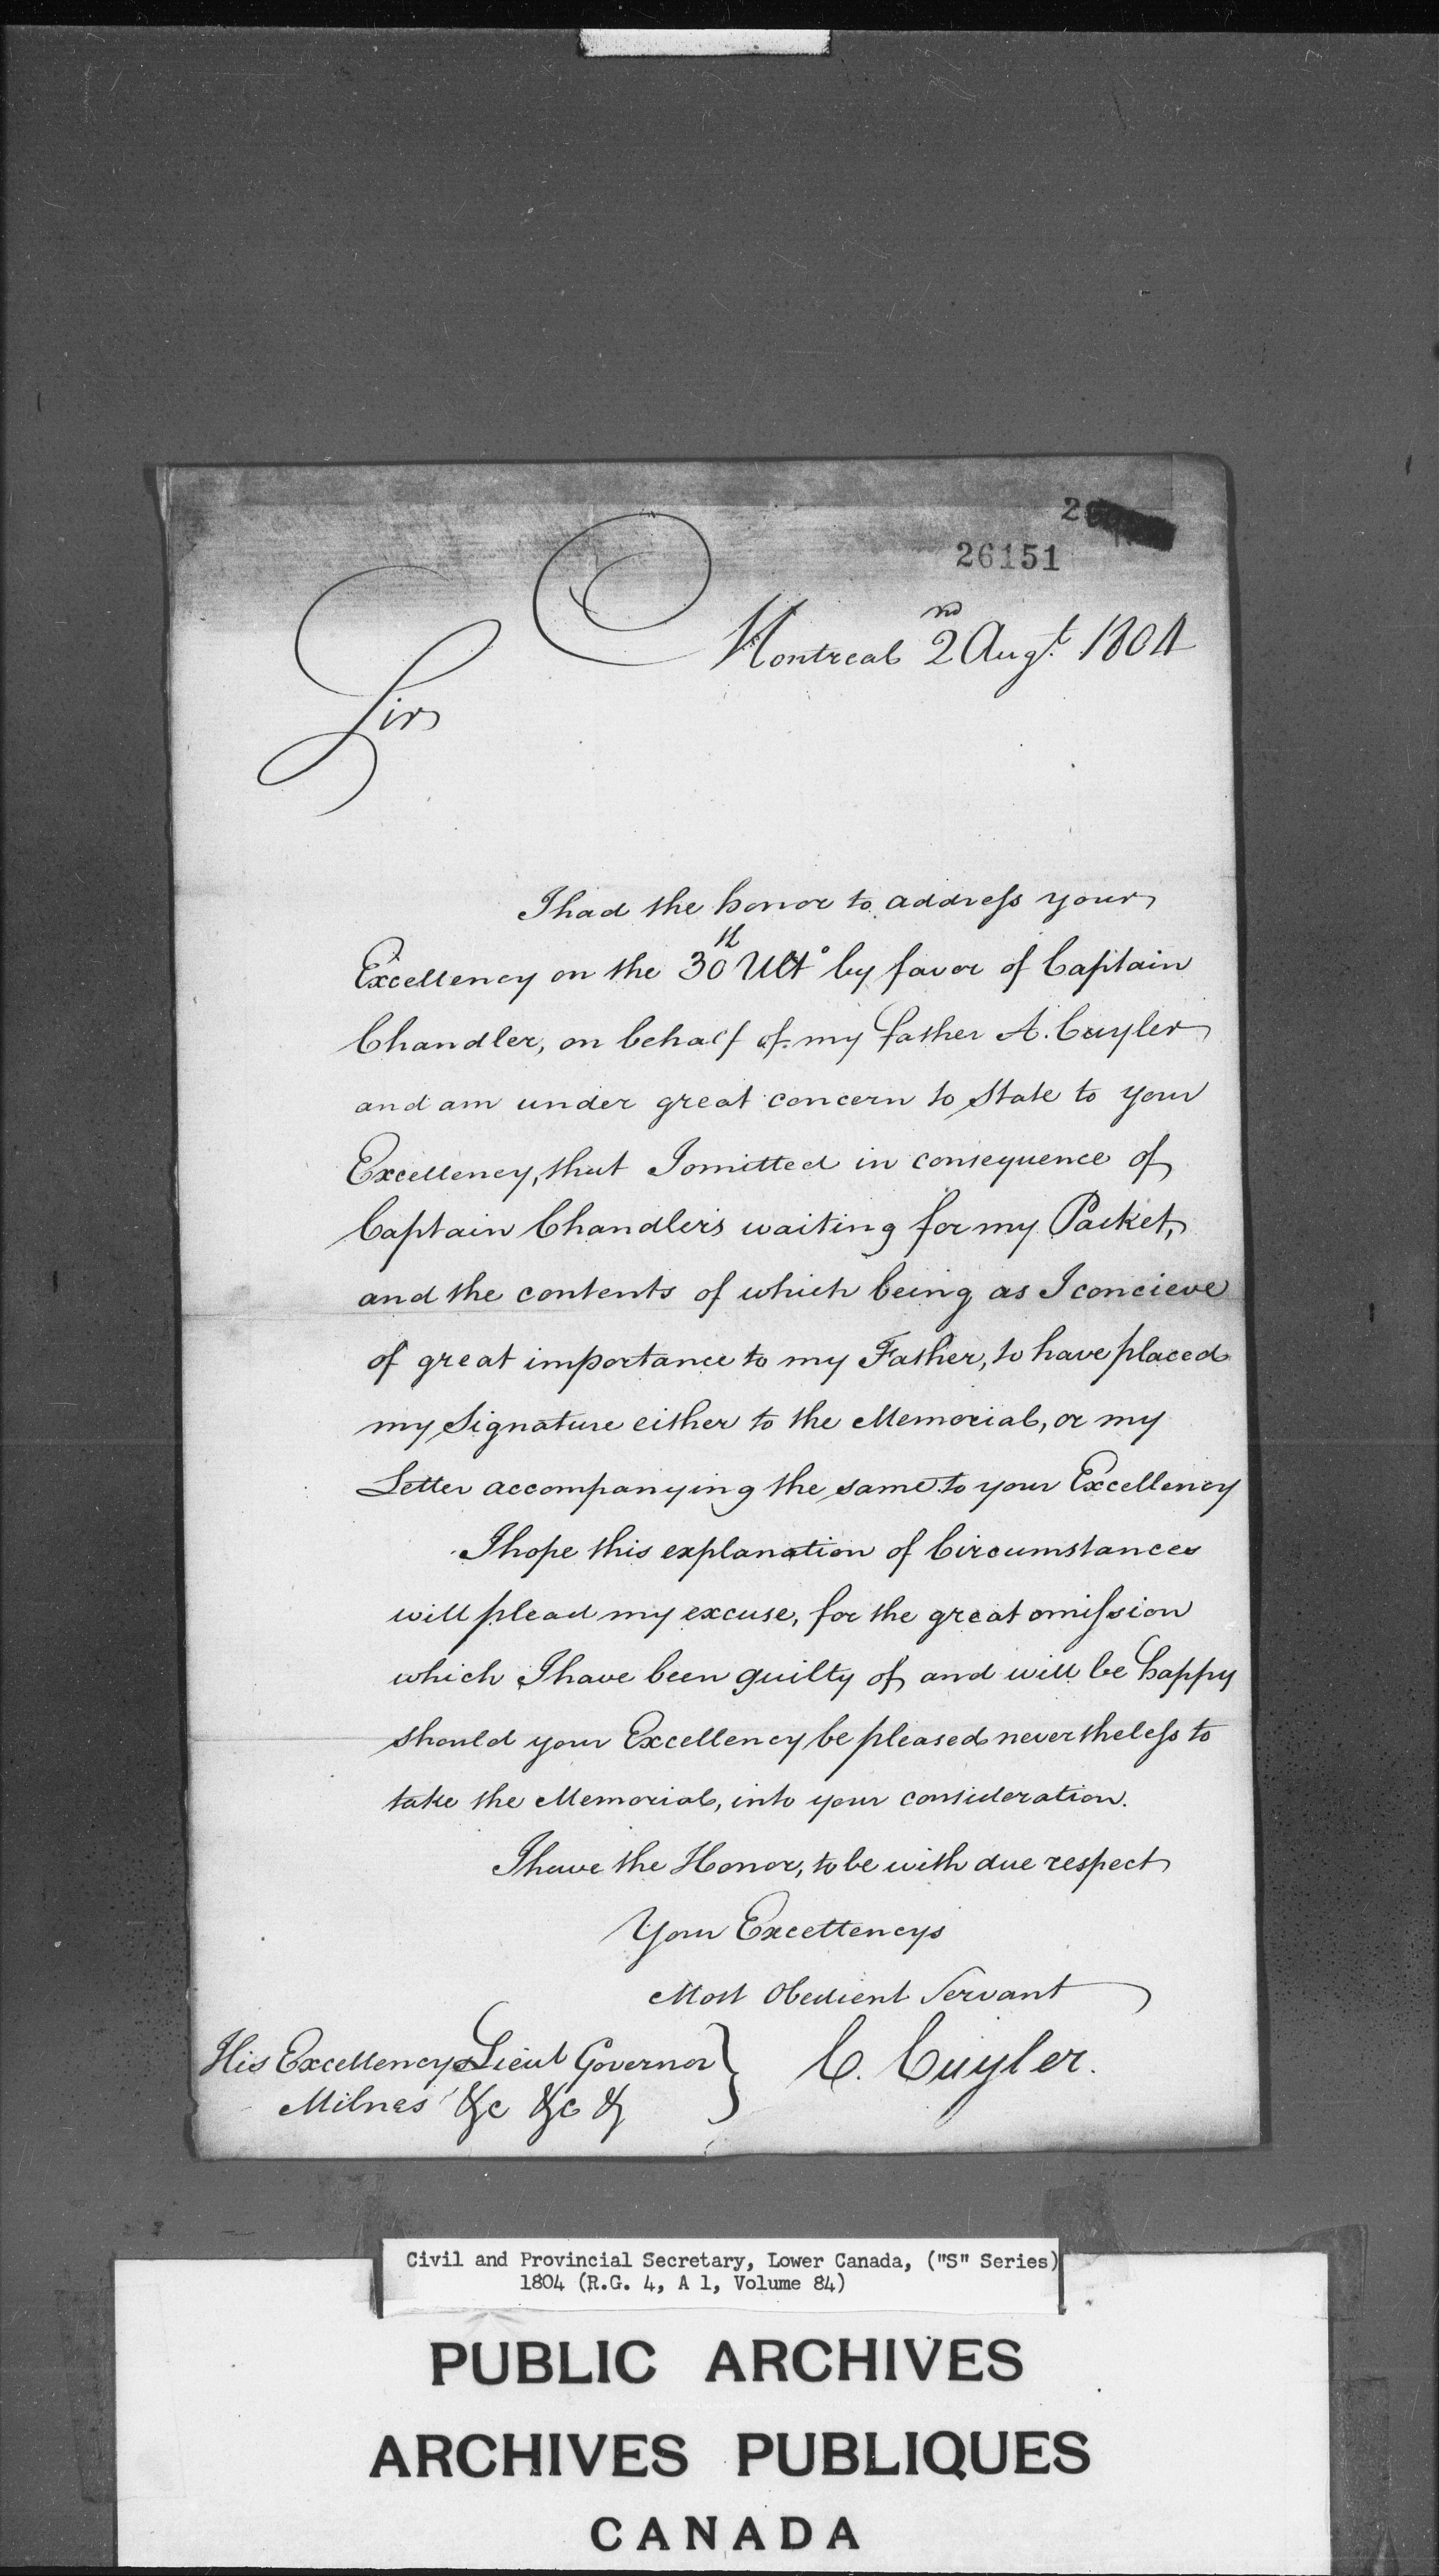 26151
Montreal 2nd Augt. 1804
Sir
I had the honor to address your
Excellency on the 30th Ulto by favor of Captain
Chandler, on behalf of my father A. Cuyler
and am under great concern to State to your
Excellency, that I omitted in consequence of
Captain Chandler's waiting for my Packet,
and the contents of which being as I concieve
of great importance to my Father, to have placed
my Signature either to the Memorial, or my
Letter accompanying the same to your Excellency
I hope this explanation of Circumstances
will plead my excuse, for the great omission
which I have been guilty of and will be happy
should your Excellency be pleased nevertheless to
take the Memorial, into your consideration.
I have the Honor, to be with due respect
Your Excellencys
Most Obedient Servant
C. Cuyler.
His Excellency Lieut Governor
Milnes &c &c &
Civil and Provincial Secretary, Lower Canada, ("S" Series)
1804 (R.G. 4, A 1, Volume 84)
PUBLIC ARCHIVES
ARCHIVES PUBLIQUES
CANADA